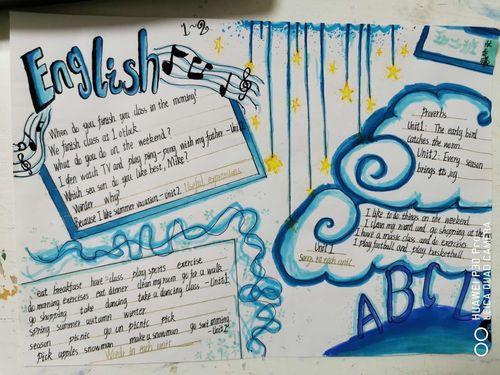 English
1~2
When do you finish you class in the morning?
We finish class at 1 o'clock.
what do you do on the weekend?
I often watch TV and play ping-pong with my father.-Unit1
Which season do you like best, Mike?
Winter. why?
Because I like summer vacation.-unit2 Useful expressions
eat breakfast have-class play sports exercise
do morning exercises eat dinner clean my room go for a walk
go shopping take dancing take a dancing class -Unit1
spring summer autumn winter
season picnic go on picnic pick
pick apples snowman make a snowman go swimming
-Unit2
Words in each unit
Proverbs
Unit1: The early bird
catches the worm.
Unit2: Every season
brings its joy.
I like to do things on the weekend
I clean my room and go shopping
I have a music class and do exercises
I play football and play basketball.
Unit 1
Songs in each unit
ABC
HUAWEI P30 PRO
LEICA QUAD CAMERA